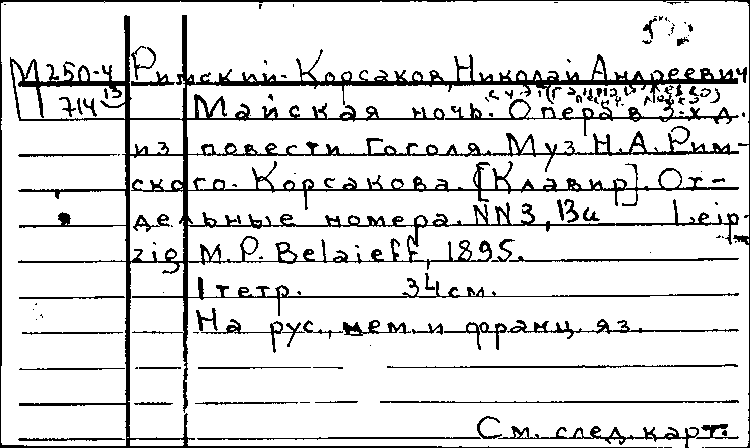 М 250-4 Римский-Корсаков, Николай Андреевич
714 13 Майская ночь. Опера в 3-х д.
из повести Гоголя. Муз. Н.А. Рим-
ского-Корсакова. [Клавир]. От-
дельные номера. NN 3, 13а Leip-
zig M.P. Belaieff, 1895.
1 тетр. 34 см.
На рус., нем. и франц. яз.
См. след. карт.